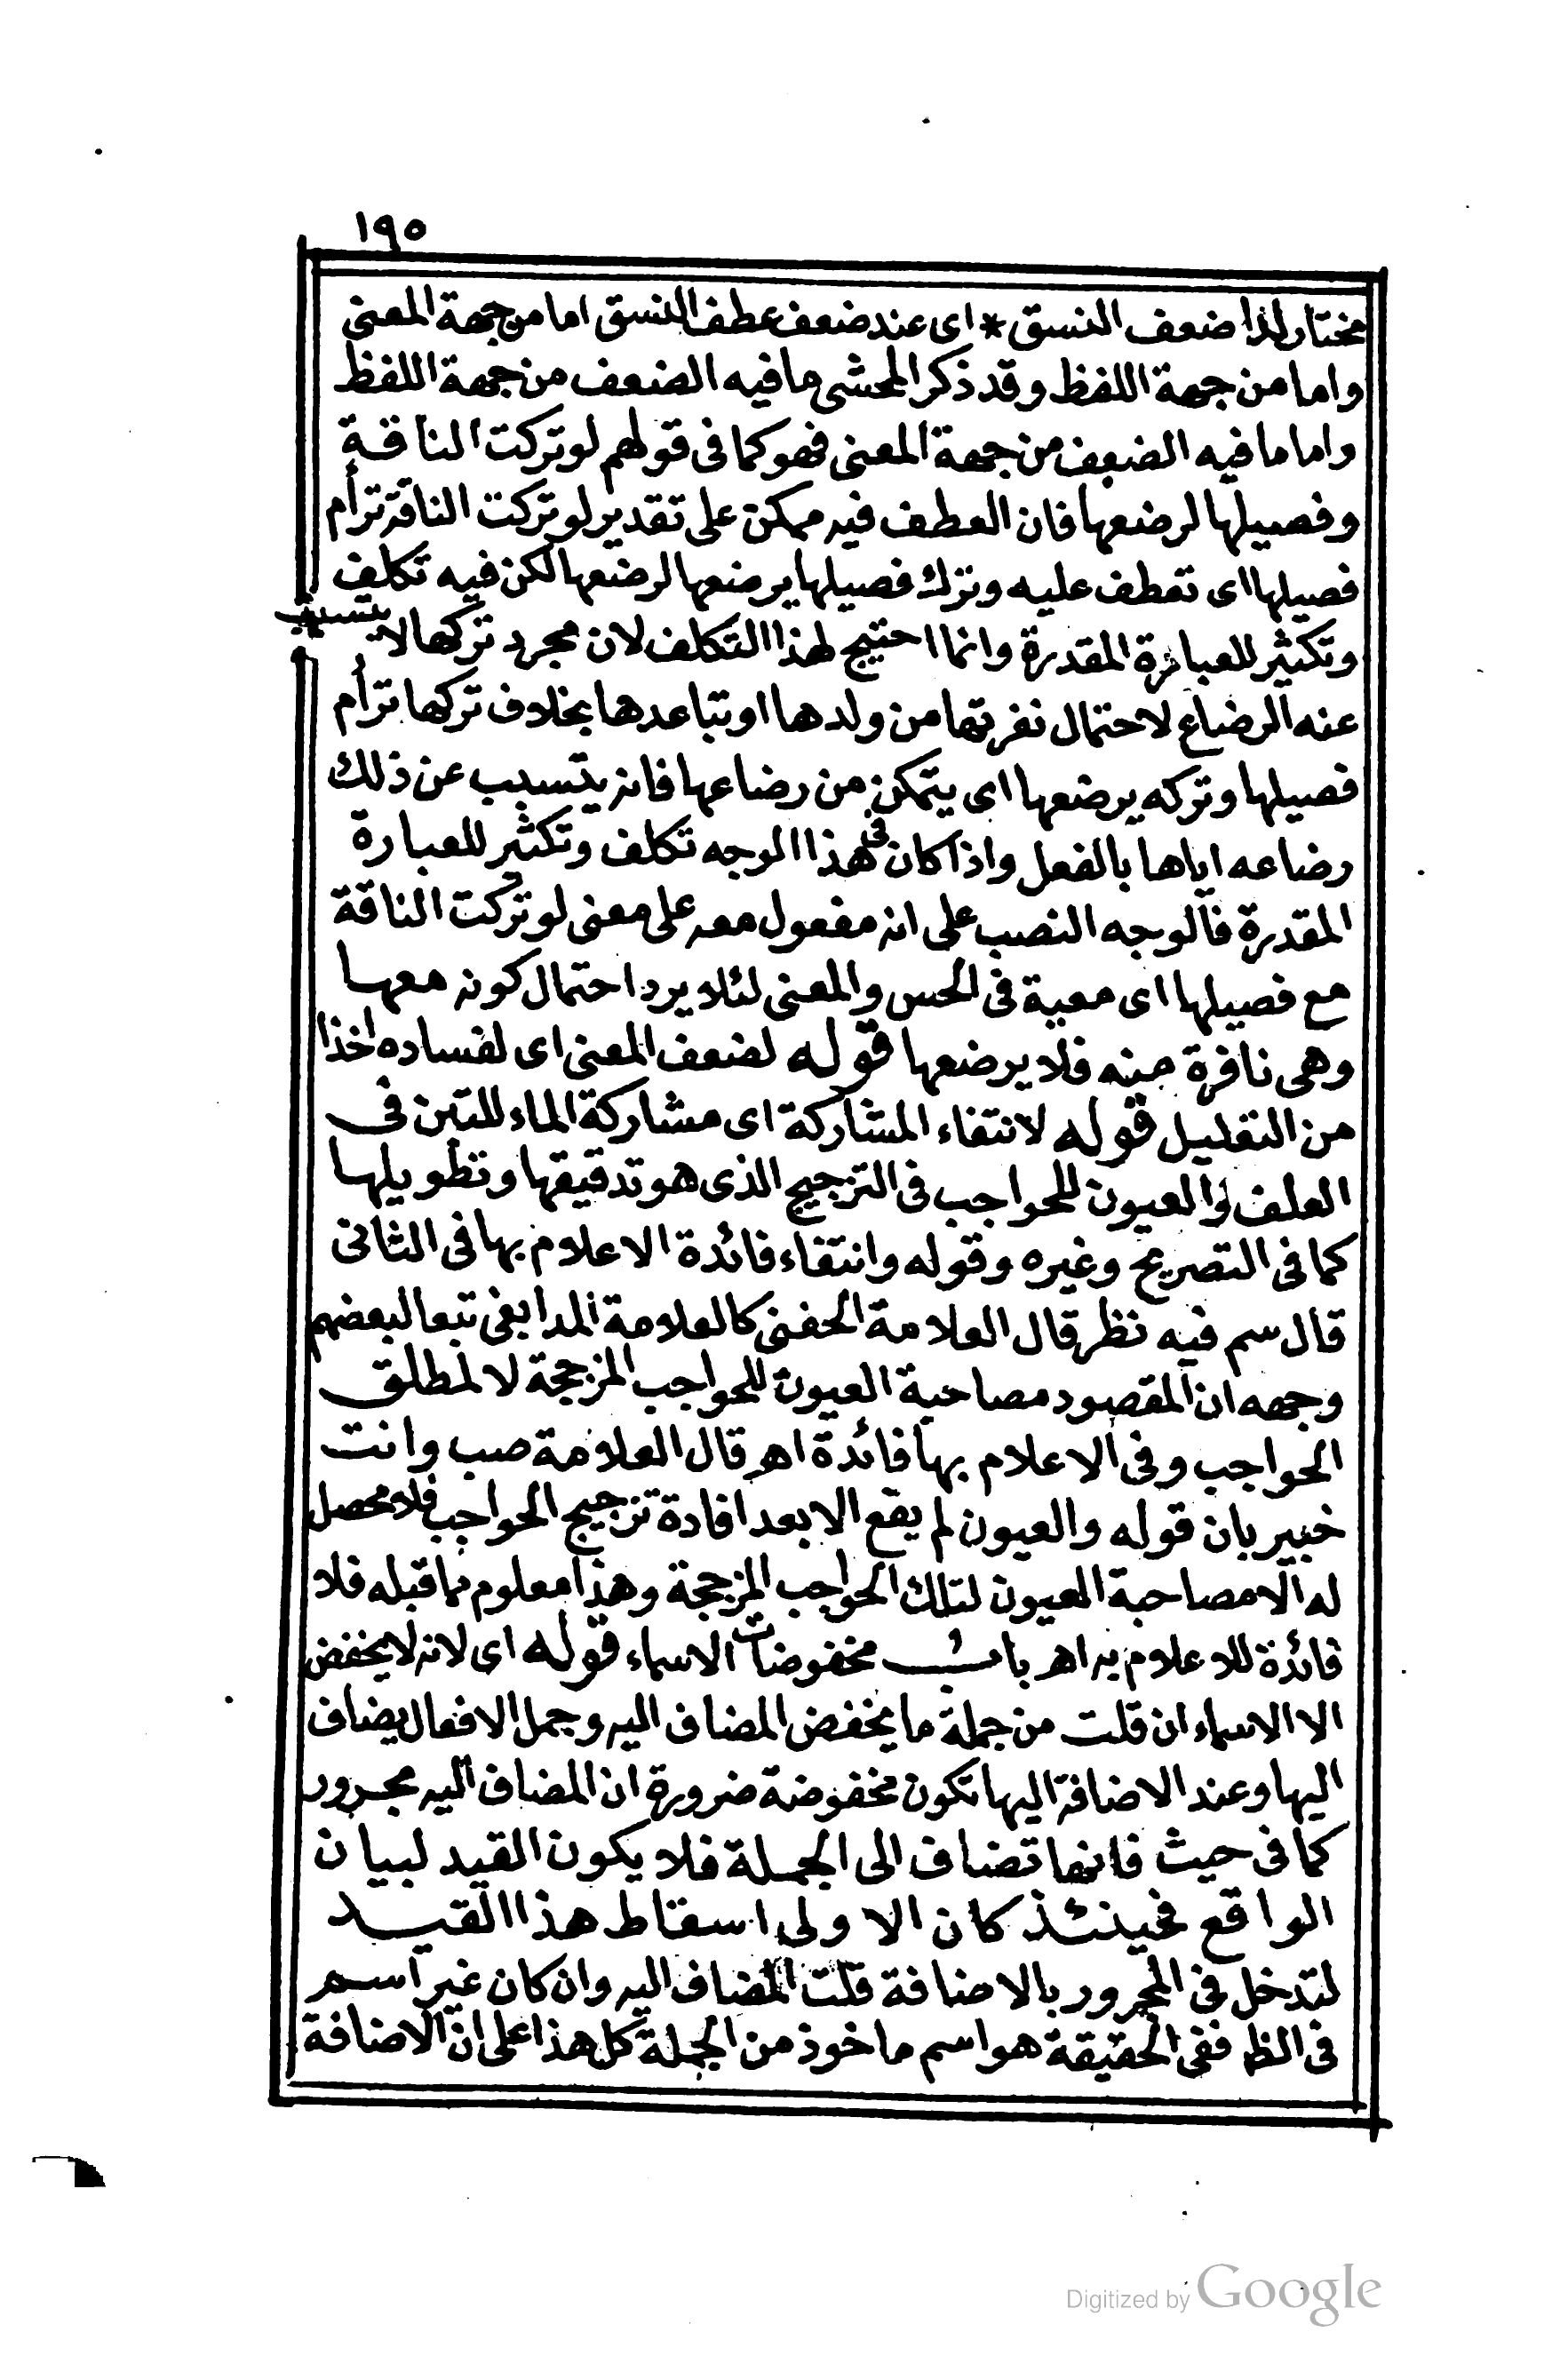 ١٩٥
مختار لذا ضعف النسق * اى عند ضعف عطف النسق اما من جهة المعنى
واما من جهة اللفظ وقد ذكر المحشى ما فيه الضعف من جهة اللفظ
واما ما فيه الضعف من جهة المعنى فهو كما فى قولهم لو تركت الناقة
وفصيلها لرضعها فان العطف فيه ممكن على تقدير لو تركت الناقة ترأم
فصيلها اى تعطف عليه وترك فصيلها يرضعها لرضعها لكن فيه تكلف
وتكثير للعبارة المقدرة وانما احتيج لهذا التكلف لان مجرد تركها لا يتسبب
عنه الرضاع لاحتمال نفرتها من ولدها او تباعدها بخلاف تركها ترأم
فصيلها وتركه يرضعها اى يتمكن من رضاعها فانه يتسبب عن ذلك
رضاعه اياها بالفعل واذا كان فى هذا الوجه تكلف وتكثير للعبارة
المقدرة فالوجه النصب على انه مفعول معه على معنى لو تُركت الناقة
مع فصيلها اى معية فى الحس والمعنى لئلا يرد احتمال كونه معها
وهى نافرة منه فلا يرضعها قوله لضعف المعنى اى لفساده اخذا
من التعليل قوله لانتفاء المشاركة اى مشاركة الماء للتبن فى
العلف والعيون للحواجب فى التزجيج الذى هو تدقيقها وتطويلها
كما فى التصريح وغيره وقوله وانتفاء فائدة الاعلام بها فى الثانى
قال سم فيه نظر قال العلامة الحفنى كالعلامة المدابغى تبعا لبعضهم
وجهه ان المقصود مصاحبة العيون للحواجب المزججة لا لمطلق
الحواجب وفى الاعلام بها فائدة اهـ قال العلامة صب وانت
خبير بان قوله والعيون لم يقع الا بعد افادة تزجيج الحواجب فلا محصل
له الا مصاحبة العيون لتلك الحواجب المزججة وهذا معلوم مما قبله فلا
فائدة للاعلام به اهـ باب مخفوضات الاسماء قوله اى لانه لا يخفض
الا الاسماء ان قلت من جملة ما يخفض المضاف اليه وجمل الافعال يضاف
اليها وعند الاضافة اليها تكون مخفوضة ضرورة ان المضاف اليه مجرور
كما فى حيث فانها تضاف الى الجملة فلا يكون القيد لبيان
الواقع فحينئذ كان الاولى اسقاط هذا القيد
لتدخل فى المجرور بالاضافة قلت المضاف اليه وان كان غير اسم
فى الظ ففى الحقيقة هو اسم ماخوذ من الجملة كل هذا على ان الاضافة
Digitized by Google